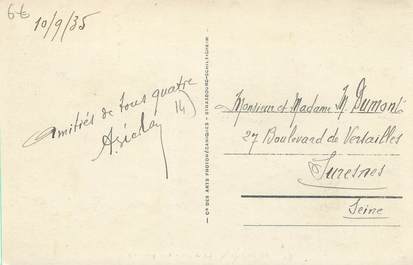 6€
10/9/35
Amitiés de tous quatre
14
Monsieur et Madame M. Dumont
27 Boulevard de Versailles
Suresnes
Seine
— Cie DES ARTS PHOTOMÉCANIQUES - STRASBOURG-SCHILTIGHEIM —